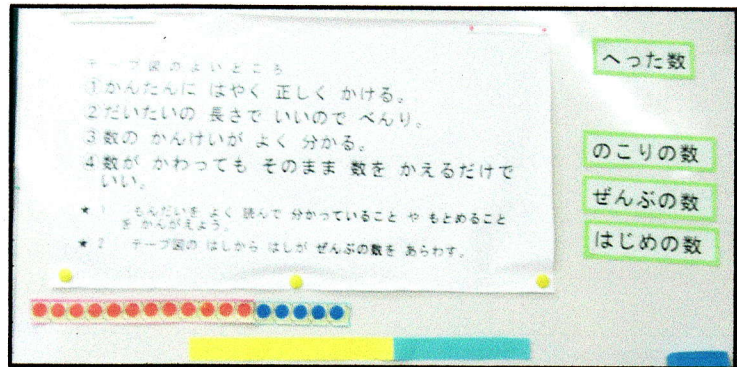 テープ図のよいところ
①かんたんに はやく 正しく かける。
②だいたいの 長さで いいので べんり。
③数の かんけいが よく 分かる。
④数が かわっても そのまま 数を かえるだけで
いい。
★1 もんだいを よく 読んで 分かっていること や もとめること
を かんがえよう。
★2 テープ図の はしから はしが ぜんぶの数を あらわす。
へった数
のこりの数
ぜんぶの数
はじめの数